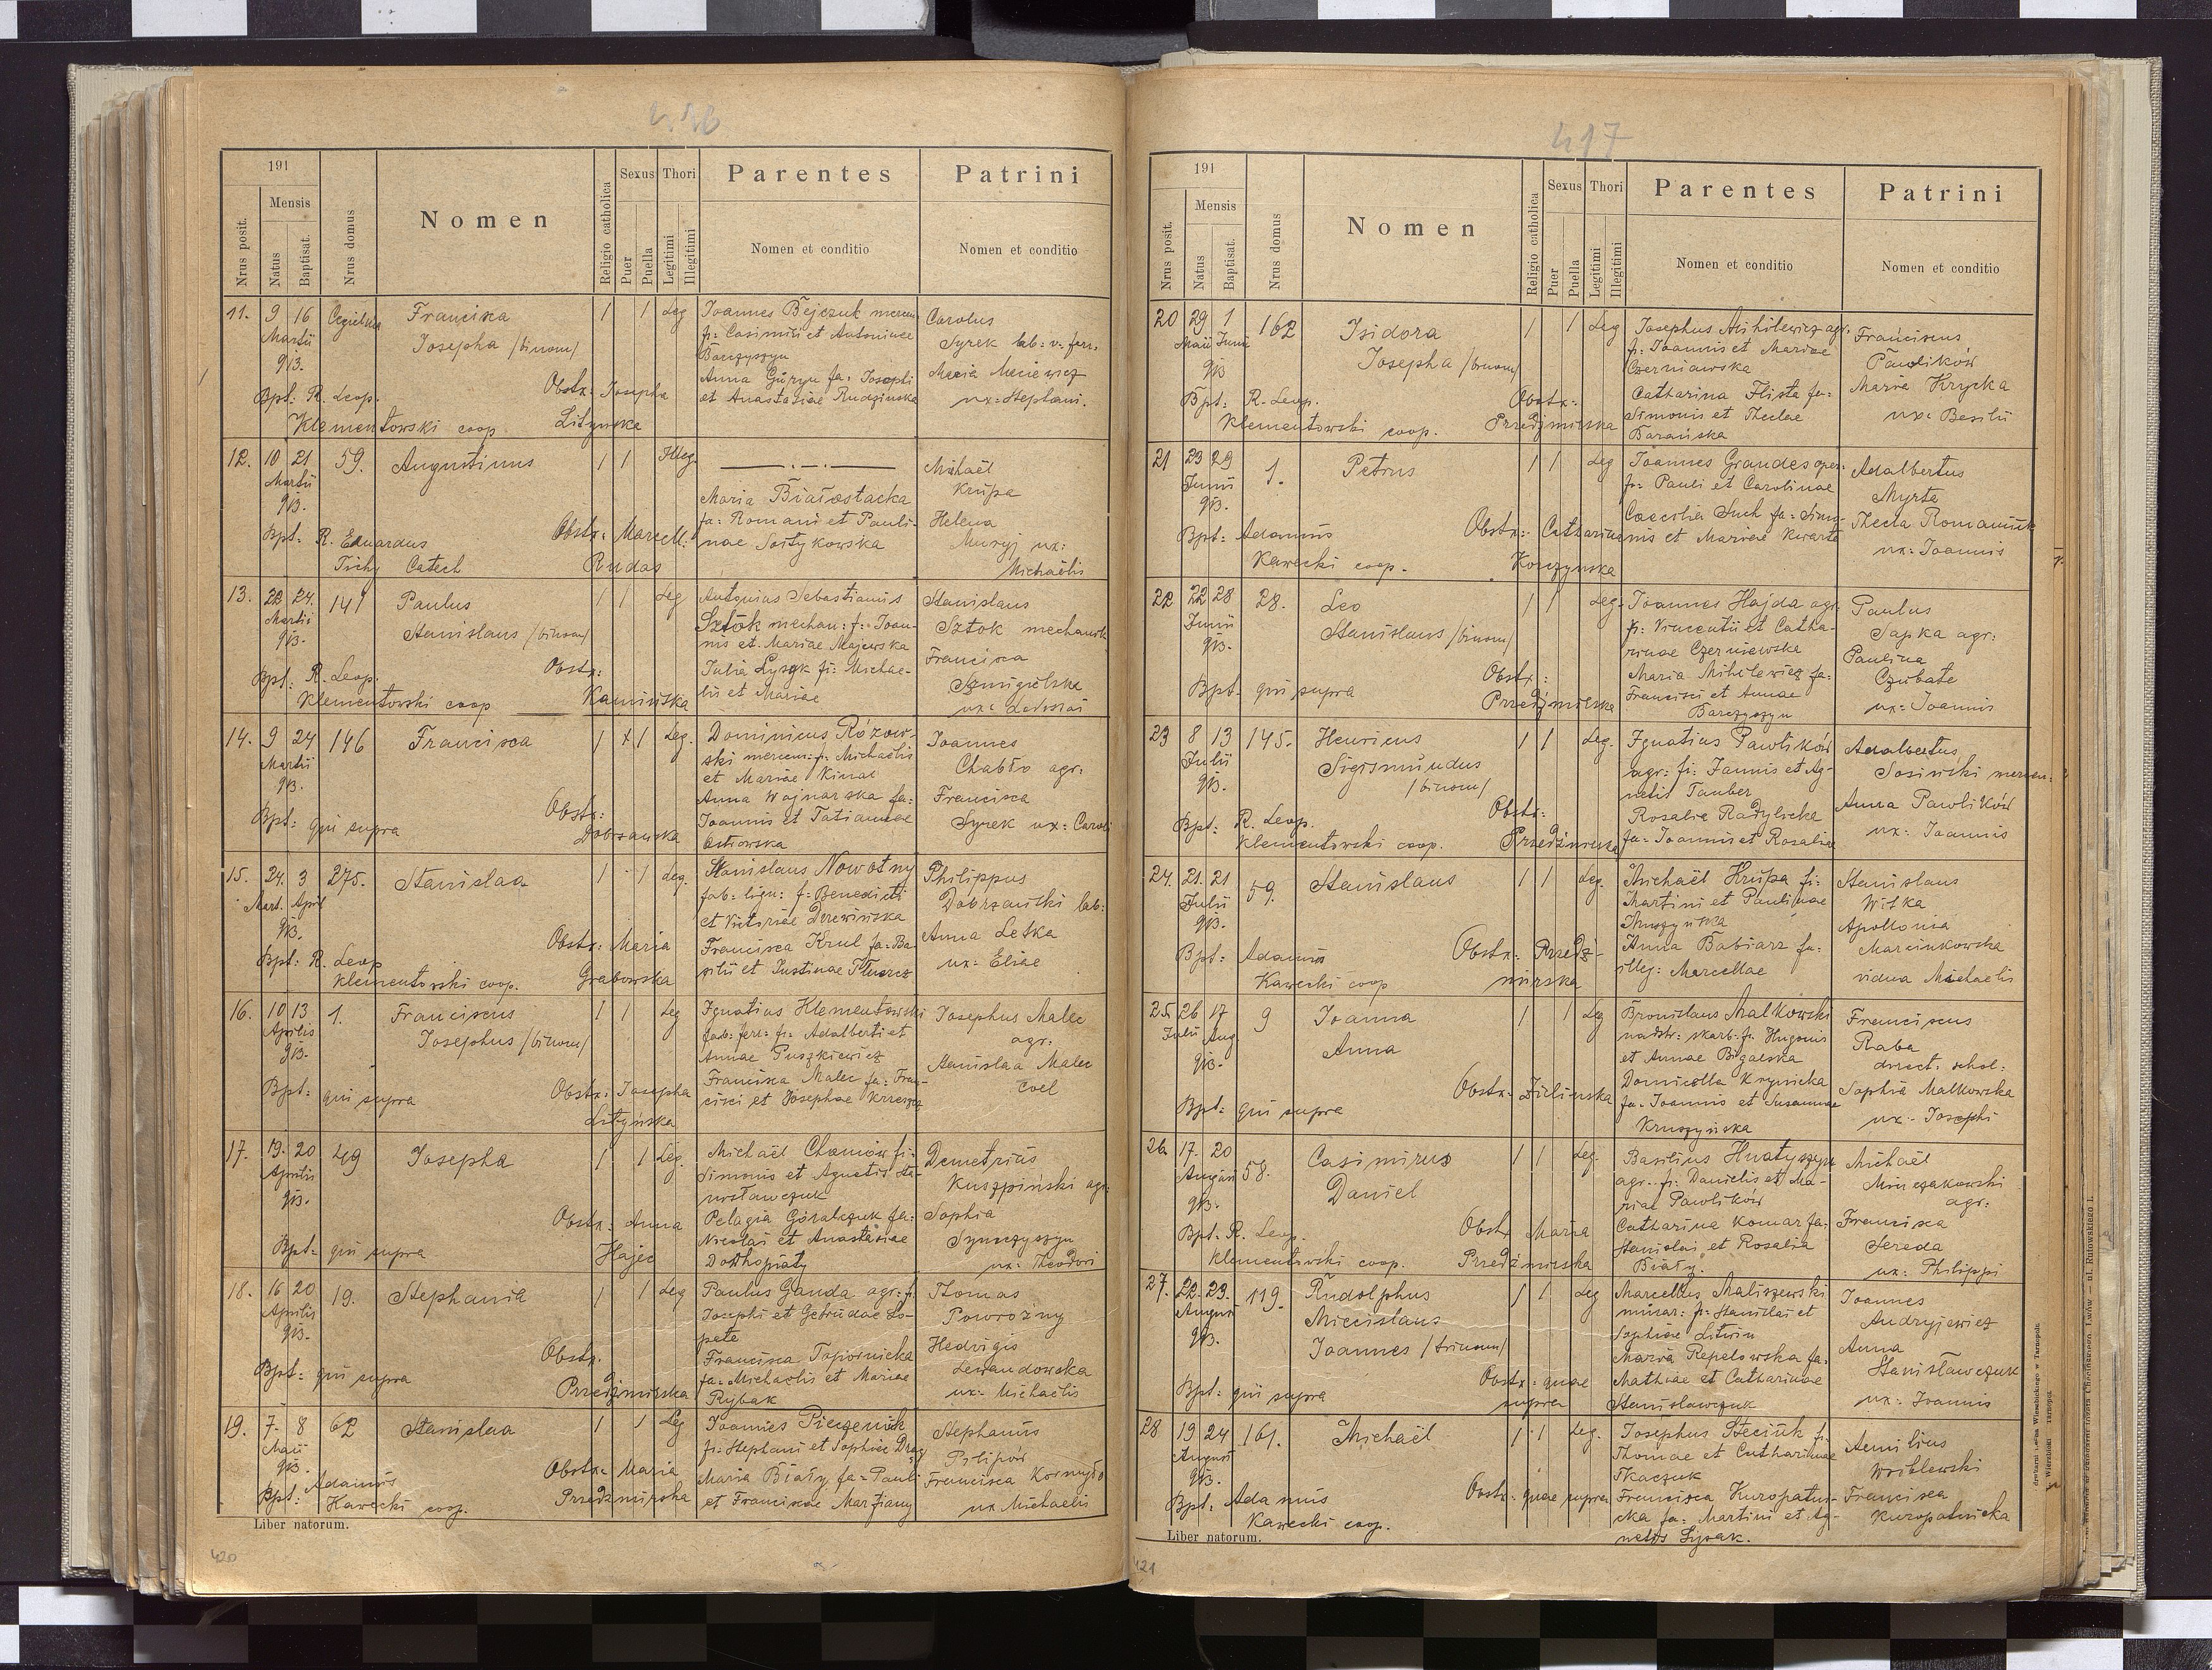 191
Mensis
Nrus posit.
Natus
Baptisat.
Nrus domus
Nomen
Religio catholica
Sexus
Puer
Puella
Thori
Legitimi
Illegitimi
Parentes
Nomen et conditio
Patrini
Nomen et conditio
11. 9 16 Martii 913.
Francisca
Josepha /binom/
1 1 Leg
Joannes Bejczuk mercen.
fi: Casimiri et Antoninae
Barczyszyn
Anna Guryn fa: Josephi
et Anastasiae Rudzinska
Carolus
Syrek lab: v. ferr.
Maria
ux: Stephani.
Bpt: R. Leop.
Klementowski coop
Obstx: Josepha
Litynska
12. 10 21 Martii 913. 59.
Augustinus
1 1 Illeg.
Maria Białostacka
fa: Romani et Pauli-
nae Soitykowska
Michaël
Krupa
Helena
Muryj ux:
Michaëlis
Bpt: R. Eduardus
Tichy Catech
Obstx: Marcell:
Rudas
13. 22 24. Martii 913. 141
Paulus
Stanislaus /binom/
1 1 Leg
Antonius Sebastianus
Sztok mechan: f: Joan-
nis et Mariae Majewska
Julia Lysyk fi: Michae-
lis et Mariae
Stanislaus
Sztok mechanik
Francisca
Szmigielska
Bpt: R. Leop.
Klementowski coop
Obstx:
Kamińska
14. 9 24 Martii 913. 146
Francisca
1 1 Leg.
Dominicus Rózow-
ski mercen: fi: Michaëlis
et Mariae Kinal
Anna Wojnarska fa:
Joannis et Tatianae
Ostrowska
Joannes
Chabło agr:
Francisca
Syrek ux: Caroli
Bpt: qui supra
Obstx:
Dobrzanska
15. 24. 3 Mart. April 913. 275.
Stanislaa
1 1 Leg.
Stanislaus Nowotny
fab: lign: f: Benedicti
et Victoriae Derewińska
Francisca Krul fa: Ba-
silii et Justinae
Philippus
Dobrzanski lab:
Anna Leśka
ux: Eliae
Bpt: R. Leop
Klementowski coop.
Obstx: Maria
Grabowska
16. 10 13 Aprilis 913. 1.
Franciscus
Josephus /binom/
1 1 Leg
Ignatius Klementowski
fab: ferr: fi: Adalberti et
Annae Puszkiewicz
Francisca Malec fa: Fran-
cisci et Josephae
Josephus Malec
agr:
Stanislaa Malec
coel
Bpt: qui supra
Obstx: Josepha
Litynska
17. 19. 20 Aprilis 913. 49
Josepha
1 1 Leg.
Michaël Chomów fi:
Simonis et Agnetis Sta-
nisławczuk
Pelagia Góralczuk fa:
Nicolai et Anastasiae
Dołhopiaty
Demetrius
Kuszpiński agr:
Sophia
Szymczyszyn
ux: Theodori
Bpt: qui supra
Obstx: Anna
Hajec
18. 16 20 Aprilis 913. 19.
Stephania
1 1 Leg
Paulus Ganda agr: f:
Josephi et Getrudae Lo-
pete
Francisca Topornicka
fa: Michaëlis et Mariae
Rybak
Thomas
Powroźny
Hedvigis
Lewandowska
ux: Michaëlis
Bpt: qui supra
Obstx:
Przedzmirska
19. 7. 8 Maii 913. 62
Stanislaa
1 1 Leg
Joannes
fi: Stephani et Sophiae
Maria Biały fa: Pauli
et Franciscae Marziany
Stephanus
Pylipów
Francisca Kornyło
ux Michaelis
Bpt: Adamus
Kawecki coop.
Obstx: Maria
Przedzmirska
Liber natorum.
420
497
191
Mensis
Nrus posit.
Natus
Baptisat.
Nrus domus
Nomen
Religio catholica
Sexus
Puer
Puella
Thori
Legitimi
Illegitimi
Parentes
Nomen et conditio
Patrini
Nomen et conditio
20 29 1 Maii Junii 913 162
Isidora
Josepha /binom/
1 1 Leg
Josephus Mihilewicz agr.
fi: Joannis et Mariae
Czerniawska
Catharina Flista fa:
Simonis et Theclae
Barańska
Franciscus
Pawlików
Maria Krycka
ux: Basilii
Bpt: R. Leop.
Klementowski coop.
Obstx:
Przedzmirska
21 23 29 Junii 913. 1.
Petrus
1 1 Leg
Joannes Grandes oper:
fi: Pauli et Carolinae
Caecilia Such fa: Simo-
nis et Mariae Kwarta
Adalbertus
Myrta
Thecla Romaniuk
ux: Joannis
Bpt: Adamus
Kawecki coop.
Obstx: Catharina
Korczynska
22 22 28 Junii 913. 28.
Leo
Stanislaus /binom/
1 1 Leg.
Joannes Hajda agr
fi: Vincentii et Catha-
rinae Czerniewska
Maria Mihilewicz fa:
Francisci et Annae
Barczyszyn
Paulus
Sapka agr:
Paulina
Czubate
ux: Joannis
Bpt: qui supra
Obstx:
Przedzmirska
23 8 13 Julii 913. 145.
Henricus
Sigismundus
/binom/
1 1 Leg.
Ignatius Pawlików
agr: fi: Joannis et Ag-
netis Tauber
Rosalia Radylicka
fa: Joannis et Rosaliae
Adalbertus
Sosinski mercen:
Anna Pawlików
ux: Joannis
Bpt: R. Leop.
Klementowski coop.
Obstx:
Przedzmirska
24. 21. 21 Julii 913. 59.
Stanislaus
1 1 Leg.
Michaël Krupa fi:
Martini et Paulinae
Anna Babiarz fa:
illeg: Marcellae
Stanislaus
Witka
Apollonia
Marcinkowska
vidua Michaelis
Bpt: Adamus
Kawecki coop
Obstx: Przedz-
mirska
25. 26 17 Julii Aug 913. 9
Joanna
Anna
1 1 Leg
Bronislaus Malkowski
nadstr: skarb: fi: Hugonis
et Annae Bigalska
Domicella Krynicka
fa: Joannis et Susannae
Kruszyńska
Franciscus
Raba
direct. schol:
Sophia Malkowska
ux: Josephi
Bpt: qui supra
Obstx: Zielinska
26 17. 20 Augusti 913. 58.
Casimirus
Daniel
1 1 Leg.
Basilius Hnatyszyn
agr: fi: Danielis et Ma-
riae Pawlików
Catharina Komar fa:
Stanislai et Rosalia
Biały.
Michaël
Minczakowski
agr:
Francisca
Sereda
ux: Philippi
Bpt: R. Leop.
Klementowski coop.
Obstx Maria
Przedzmirska
27. 22. 23. Augusti 913. 119.
Rudolphus
Miecislaus
Joannes /trinom/
1 1 Leg
Marcellus Maliszewski
murar: fi: Stanislai et
Sophiae Litwin
Maria Repelowska fa:
Mathiae et Catharinae
Stanisławczuk
Joannes
Andryjewicz
Anna
Stanisławczuk
ux: Joannis
Bpt: qui supra
Obstx: quae
supra
28 19 24 Augusti 913. 161.
Michaël
1 1 Leg.
Josephus Steciuk fi:
Thomae et Catharinae
Tkaczuk
Francisca Kuropatni-
cka fa: Martini et Ag-
netis Lysak.
Aemilius
Wróblewski
Francisca
Kuropatnicka
Bpt: Adamus
Kawecki coop.
Obstx: quae supra
Liber natorum.
421